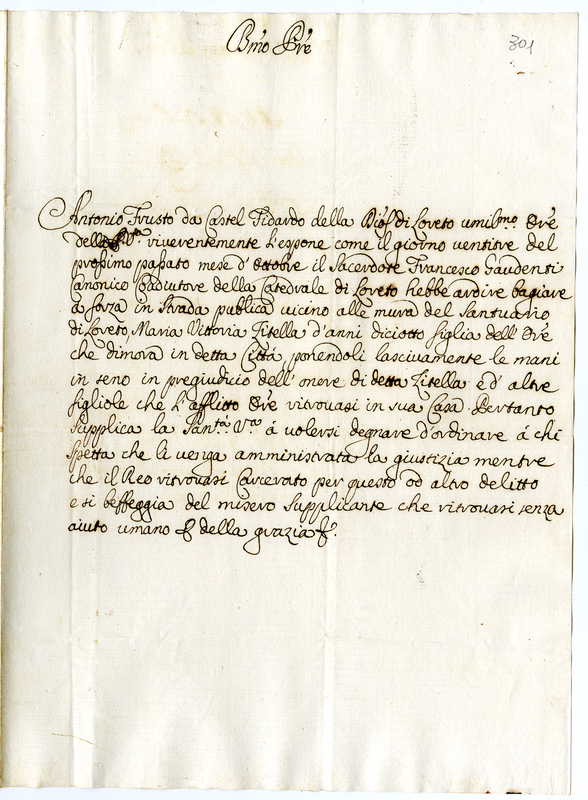 Bmo Pre
301
Antonio Frusto da Castel Fidardo della Dioc di Loreto umilmo Ore
della Sta Va riverentemente L'espone come il giorno ventitre del
prossimo passato mese d'ottobre il Sacerdote Francesco Gaudenti
Canonico Coadiutore della Catedrale di Loreto hebbe ardire bagiare
a forza in strada publica vicino alle mura del Santuario
di Loreto, Maria Vittoria Zitella d'anni diciotto figlia dell' Ore
che dimora in detta Città, ponendoli lascivamente le mani
in seno in pregiudicio dell' onere di detta Zitella, e d' altre
figliole che L'afflitto Ore ritrovasi in sua Casa. Pertanto
supplica la Santa Vra à volersi degnare d'ordinare à chi
spetta che li venga amministrata la giustizia mentre
che il Reo ritrovasi Carcerato per questo od altro delitto
e si beffeggia del misero supplicante che ritrovasi senza
aiuto umano e della grazia